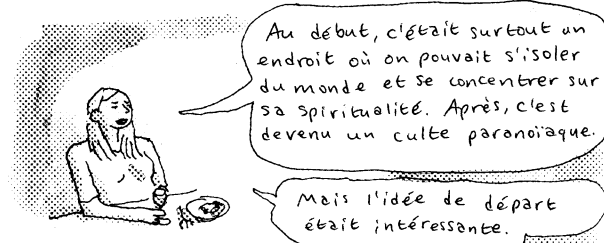 Au début, c'était surtout un
endroit où on pouvait s'isoler
du monde et se concentrer sur
sa spiritualité. Après, c'est
devenu un culte paranoïaque.
Mais l'idée de départ
était intéressante.